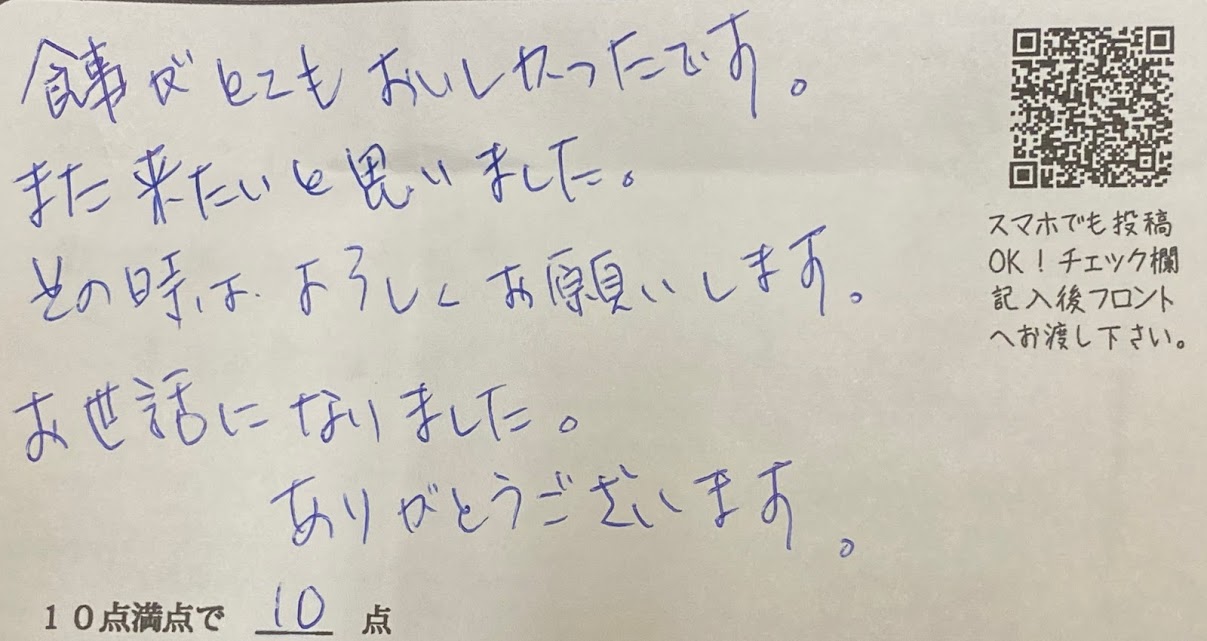 食事がとてもおいしかったです。
また来たいと思いました。
その時は、よろしくお願いします。
お世話になりました。
ありがとうございます。
10点満点で 10 点
スマホでも投稿
OK！チェック欄
記入後フロント
へお渡し下さい。